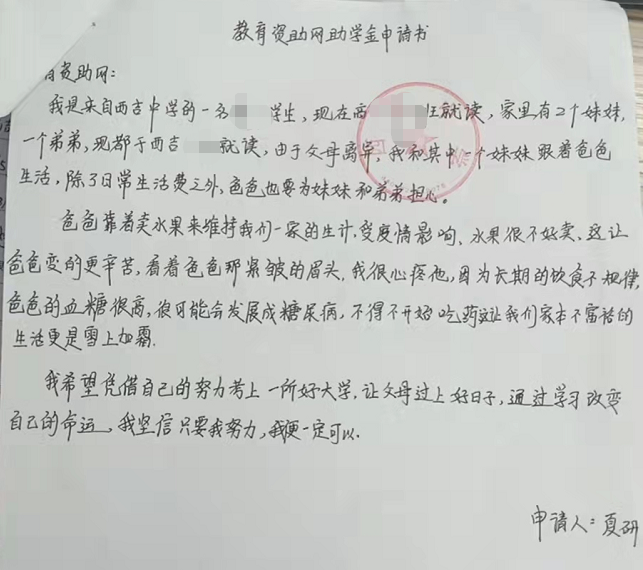 教育资助网助学金申请书
育资助网:
我是来自西吉中学的一名 学生,现在高 班就读,家里有2个妹妹,
一个弟弟,现都于西吉 就读,由于父母离异,我和其中一个妹妹跟着爸爸
生活,除了日常生活费之外,爸爸也要为妹妹和弟弟担心。
爸爸靠着卖水果来维持我们一家的生计,受疫情影响,水果很不好卖,这让
爸爸变的更辛苦,看着爸爸那紧皱的眉头,我很心疼他,因为长期的饮食不规律,
爸爸的血糖很高,很可能会发展成糖尿病,不得不开始吃药这让我们家本不富裕的
生活更是雪上加霜.
我希望凭借自己的努力考上一所好大学,让父母过上好日子,通过学习改变
自己的命运,我坚信只要我努力,我便一定可以.
申请人:夏研